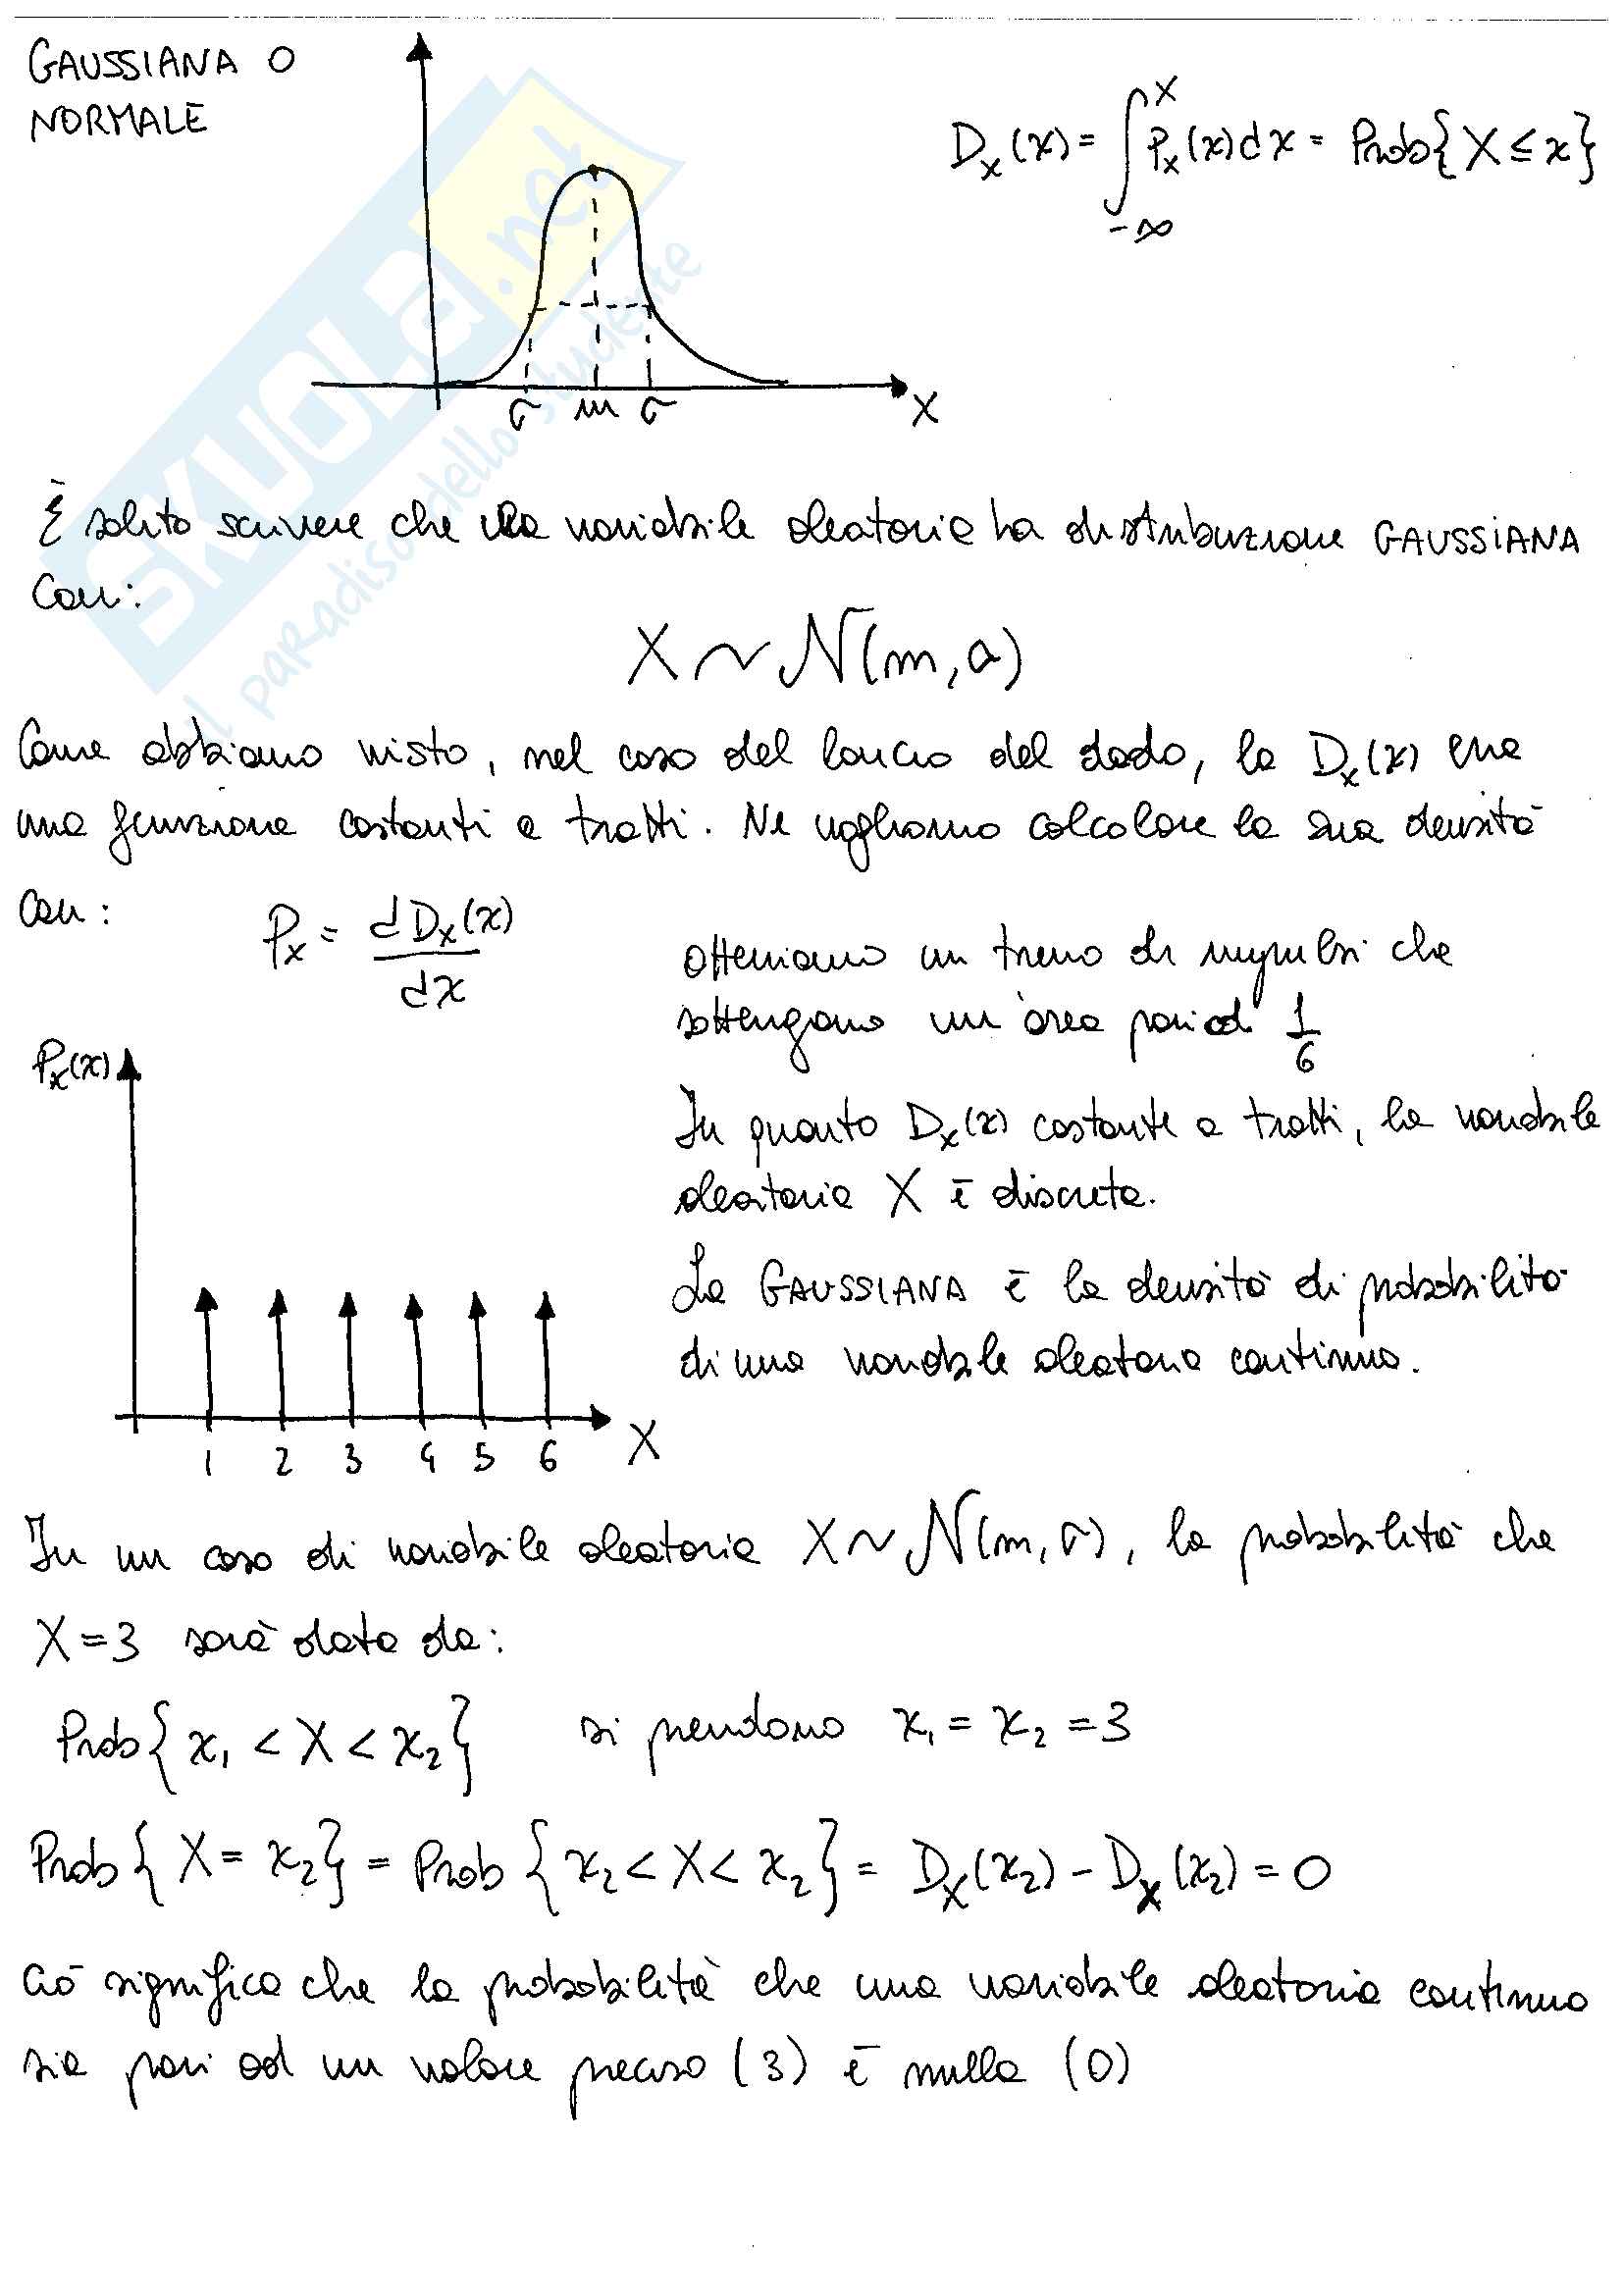 GAUSSIANA O
NORMALE
D_x(x) = ∫_{-∞}^{x} P_x(x)dx = Prob{X ≤ x}
σ m σ X
È solito scrivere che una variabile aleatoria ha distribuzione GAUSSIANA
con:
X ~ N(m, σ)
Come abbiamo visto, nel caso del lancio del dado, la D_x(x) era
una funzione costanti a tratti. Ne vogliamo calcolare la sua densità
con:
P_x = dD_x(x) / dx
otteniamo un treno di impulsi che
sottengano un'area pari ad 1/6
In quanto D_x(x) costante a tratti, la variabile
aleatoria X è discreta.
La GAUSSIANA è la densità di probabilità
di una variabile aleatoria continua.
P_x(x)
1 2 3 4 5 6 X
In un caso di variabile aleatoria X ~ N(m, σ), la probabilità che
X = 3 sarà data da:
Prob{x₁ < X < x₂} si prendono x₁ = x₂ = 3
Prob{X = x₂} = Prob{x₂ < X < x₂} = D_x(x₂) - D_x(x₂) = 0
Ciò significa che la probabilità che una variabile aleatoria continua
sia pari ad un valore preciso (3) è nulla (0)
SKUOLA.net
il paradiso dello studente